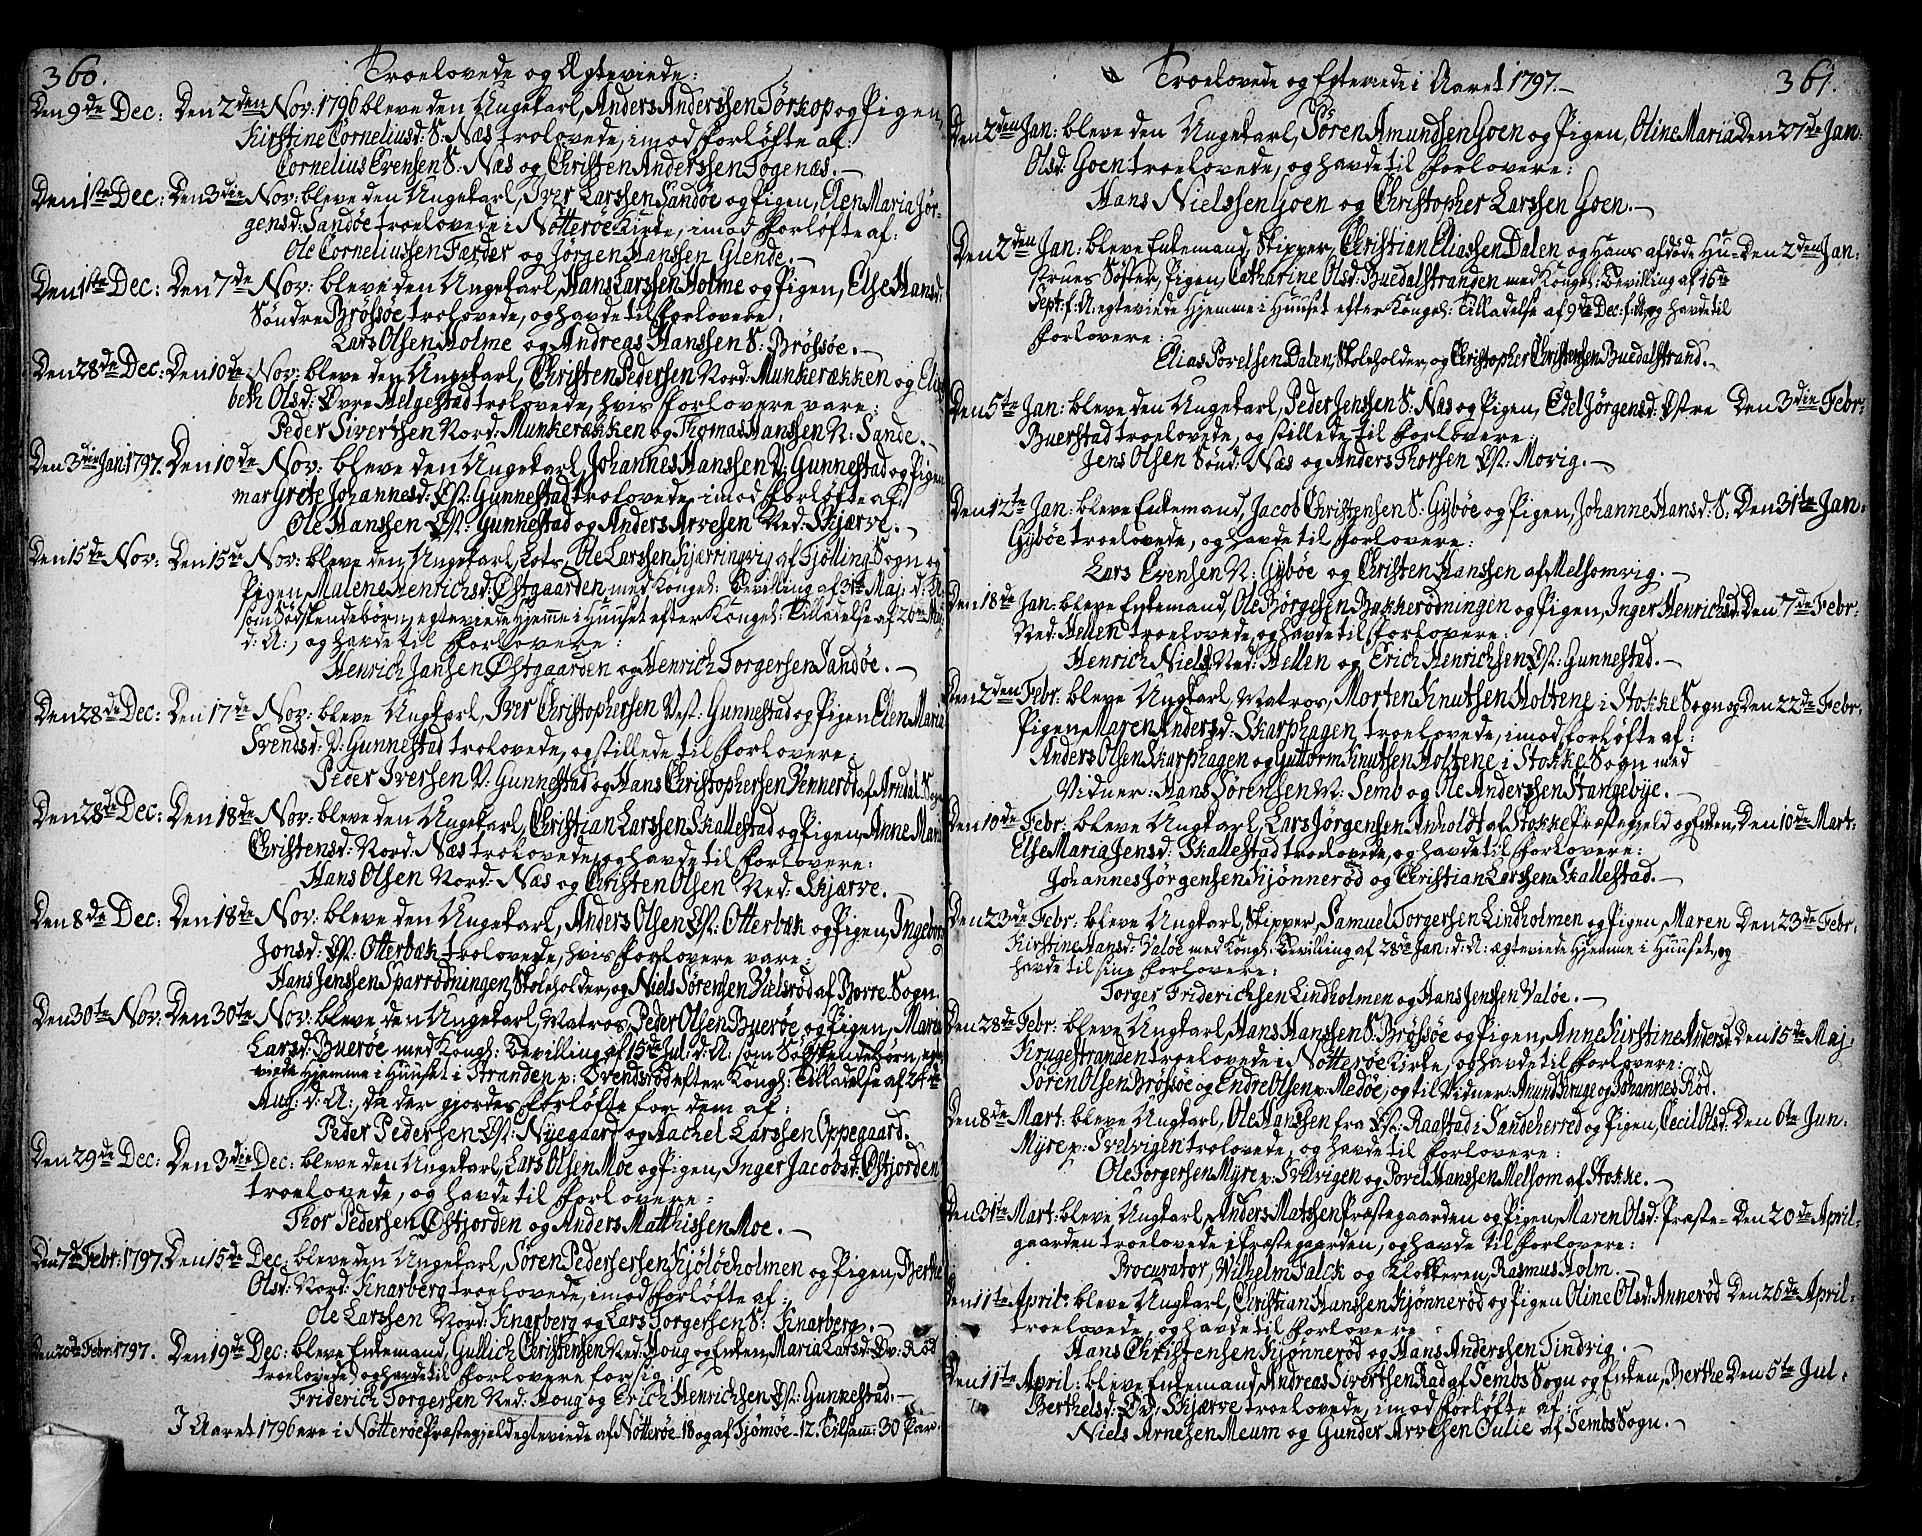 360.
Troelovede og Ægteviede:
Den 9de Dec: Den 2den Nov: 1796 bleve den Ungekarl, Anders Anderssen Torkop og Pigen,
Kirstine Corneliusd: S: Næs trolovede, imod Forløfte af:
Cornelius Evensen S: Næs og Christen Anderssen Togenæs.
Den 1ste Dec: Den 3die Nov: bleve den Ungekarl, Iver Larssen Sandøe og Pigen, Elen Maria Jør-
gensd: Sandøe troelovede i Nøtterøe Kirke, imod Forløfte af:
Ole Corneliussen Færder og Jørgen Hanssen Glende.
Den 1ste Dec: Den 7de Nov: bleve den Ungekarl, Hans Larssen Holme og Pigen, Else Hansd:
Søndre Brøssøe trolovede, og havde til Forlovere:
Lars Olsen Holme og Andreas Hanssen S: Brøssøe.
Den 28de Dec: Den 10de Nov: bleve den Ungekarl, Christen Pedersen Nord: Munkerækken og Elisa
beth Olsd: Øvre Helgestad trolovede, hvis Forlovere vare:
Peder Sivertsen Nord: Munkerækken og Thomas Hanssen N: Sande.
Den 3die Jan: 1797. Den 10de Nov: bleve den Ungekarl, Johannes Hanssen V: Gunnestad og Pigen
Margrete Johannesd: Øst: Gunnestad trolovede, imod Forløfte af:
Ole Hanssen Øst: Gunnestad og Anders Arvesen Ned: Skjærve.
Den 15de Nov: Den 15de Nov: bleve den Ungekarl, Lots, Ole Larssen Kjærringvig af Tjølling Sogn og
Pigen, Malene Henrichsd: Østgaarden med Kongel: Bevilling af 31te Maj: d: A:
som Sødskendebørn, egteviede Hjemme i Huuset efter Kongel: Tilladelse af 26de Aug
d: A:, og havde til Forlovere:
Henrich Jansen Østgaarden og Henrich Torgersen Sandøe.
Den 28de Dec: Den 17de Nov: bleve Ungkarl, Iver Christophersen Vest: Gunnestad og Pigen Elen Maria
Svendsd: V: Gunnestad trolovede, og stillede til Forlovere:
Peder Iversen V: Gunnestad og Hans Christophersen Vennerød af Arndal Sogn
Den 28de Dec: Den 18de Nov: bleve den Ungekarl, Christian Larssen Skallestad og Pigen, Anne Mari
Christensd: Nord: Næs trolovede, og havde til Forlovere:
Hans Olsen Nord: Næs og Christen Olsen Ned: Skjærve.
Den 8de Dec: Den 18de Nov: bleve den Ungekarl, Anders Olsen Øst: Otterbæk og Pigen, Ingeborg
Jonsd: Øst: Otterbæk trolovede, hvis Forlovere vare:
Hans Jenssen Sparrødningen, Skoleholder, og Niels Sørensen Vielsrød af Borre Sogn.
Den 30te Nov: Den 30te Nov: bleve den Ungekarl, Matros, Peder Olsen Buerøe og Pigen, Maria
Larsd: Buerøe med Kongl: Bevilling af 15de Jul: d: A: som Sødskendebørn, egte
viede Hjemme i Huuset i Stranden p: Svendsrød efter Kongl: Tilladelse af 24de
Aug: d: A:, da der gjordes Forløfte for dem af:
Peder Pedersen Øst: Nyegaard og Aachel Larssen Oppegaard.
Den 29de Dec: Den 3die Dec: bleve den Ungekarl, Lars Olsen Moe og Pigen, Inger Jacobsd: Østjorden
troelovede, og havde til Forlovere:
Thor Pedersen Østjorden og Anders Matthissen Moe.
Den 7de Febr: 1797. Den 15de Dec: bleve den Ungekarl, Søren Pedersersen Kjøløeholmen og Pigen, Berthe
Olsd: Nord: Knarberg troelovede, imod Forløfte af:
Ole Larssen Nord: Knarberg og Lars Torgersen S: Knarberg.
Den 20de Febr: 1797. Den 19de Dec: bleve Enkemand, Gullich Christensen Ned: Houg og Enken, Maria Larsd: Øv: Rød
troelovede og havde til Forlovere for sig:
Friderich Torgersen Ned: Houg og Erich Henrichsen Øst: Gunnestad.
I Aaret 1796 ere i Nøtterøe Præstegjeld egteviede af Nøtterøe 18 og af Tjømøe 12. Tilsamm: 30 Par.
Troelovede og Egteviede i Aaret 1797.
361.
Den 2den Jan: bleve den Ungekarl, Søren Amundsen Goen og Pigen, Oline Maria Den 27de Jan:
Olsd: Goen troelovede, og havde til Forlovere:
Hans Nielssen Goen og Christopher Larssen Goen.
Den 2den Jan: bleve Enkemand, Skipper, Christian Eliassen Dalen og Hans afdøde Hu- Den 2den Jan:
strues Søster, Pigen, Catharine Olsd: Buedalstranden med Kongel: Bevilling af 16te
Sept: f: A: egteviede Hjemme i Huuset efter Kongel: Tilladelse af 9de Dec: f: A: og havde til
Forlovere:
Elias Porelsen Dalen, Skoleholder, og Christopher Christensen Buedalstrand.
Den 5te Jan: bleve den Ungekarl, Peder Jenssen S: Næs og Pigen, Edel Jørgensd: Østre Den 3die Febr:
Buerstad troelovede, og stillede til Forlovere:
Jens Olsen Sønd: Næs og Anders Thorsen Øst: Morig.
Den 12te Jan: bleve Enkemand, Jacob Christensen S: Gybøe og Pigen, Johanne Hansd: S. Den 31te Jan:
Gybøe troelovede, og havde til Forlovere:
Lars Evensen N: Gybøe og Christen Hanssen af Melsomvig.
Den 18de Jan: bleve Enkemand, Ole Børgesen Bakkerødningen og Pigen, Inger Henrichsd: Den 7de Febr:
Ned: Hellen troelovede, og havde til Forlovere:
Henrich Niels: Ned: Hellen og Erich Henrichsen Øst: Gunnestad.
Den 2den Febr: bleve Ungkarl, Matros, Morten Knutsen Holtene i Stokke Sogn og Den 22de Febr:
Pigen, Maren Andersd: Skarphagen troelovede, imod Forløfte af:
Anders Olsen Skarphagen og Guttorm Knutsen Holtene i Stokke Sogn med
Vidner: Hans Sørensen N: Semb og Ole Anderssen Stangebye.
Den 10de Febr: bleve Ungkarl, Lars Jørgensen Anholdt af Stokke Præstegjeld og Enken, Den 10de Mart:
Else Maria Jensd: Skallestad troelovede, og havde til Forlovere:
Johannes Jørgensen Kjønnerød og Christian Larssen Skallestad.
Den 23de Febr: bleve Ungkarl, Skipper, Samuel Torgersen Lindholmen og Pigen, Maren Den 23de Febr:
Kirstine Hansd: Valøe med Kongl: Bevilling af 28de Jan: d: A: ægteviede Hjemme i Huuset, og
havde til sine Forlovere:
Torger Friderichsen Lindholmen og Hans Jenssen Valøe.
Den 28de Febr: bleve Ungkarl, Hans Hanssen S: Brøssøe og Pigen, Anne Kirstine Andersd: Den 15de Maj:
Krugestranden troelovede i Nøtterøe Kirke, og havde til Forlovere:
Søren Olsen Brøssøe og Endre Olsen p: Medøe, og til Vidner: Amund Kruge og Johannes Rød.
Den 8de Mart: bleve Ungkarl, Ole Hanssen fra Øst: Raastad i Sandeherred og Pigen, Cecil Olsd: Den 6te Jun:
Myre p: Svelvigen trolovede, og havde til Forlovere:
Ole Torgersen Myre p: Svelvigen og Povel Hanssen Melsom af Stokke.
Den 31te Mart: bleve Ungkarl, Anders Matssen Præstegaarden og Pigen, Maren Olsd: Præste- Den 20de April:
gaarden troelovede i Præstegaarden, og havde til Forlovere:
Procurator, Wilhelm Falck og Klokkeren, Rasmus Holm.
Den 11te April: bleve Ungkarl, Christian Hanssen Kjønnerød og Pigen Oline Olsd: Annerød Den 26de April:
troelovede, og havde til Forlovere:
Hans Christensen Kjønnerød og Hans Anderssen Tindvig.
Den 11te April: bleve Enkemand, Andreas Sivertsen Rad af Sembs Sogn og Enken, Berthe Den 5te Jul:
Berthelsd: Øv: Skjærve troelovede, imod Forløfte af:
Niels Arnesen Meum og Gunder Arvesen Oulie af Sembs Sogn.